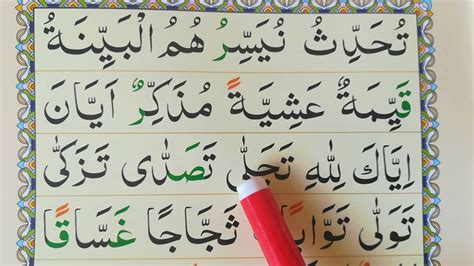 تُحَدِّثُ نُيَسِّرُ هُمُ الْبَيِّنَةُ
قَيِّمَةٌ عَشِيَّةً مُذَكِّرٌ اَيَّانَ
اِيَّاكَ لِلّٰهِ تَجَلّٰى تَصَدّٰى تَزَكّٰى
تَوَلّٰى تَوَّابًا ثَجَّاجًا غَسَّاقًا